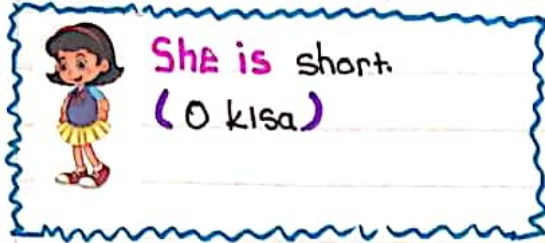 She is short.
(O kısa)